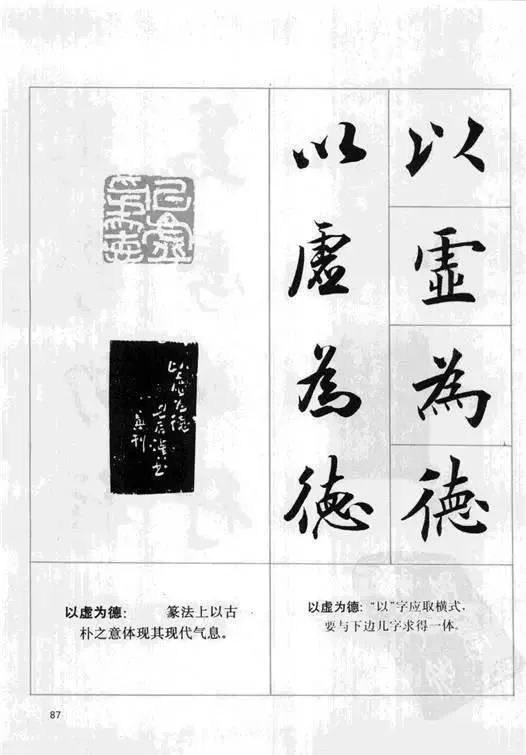 以虛為德
以虛為德
以虚为德:“以”字应取横式,
要与下边几字求得一体。
以虚为德: 篆法上以古
朴之意体现其现代气息。
87